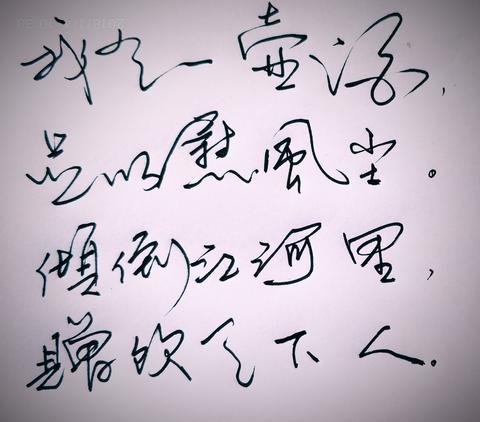 我有一壶酒，
足以慰風尘。
傾倒江河里，
贈饮天下人.